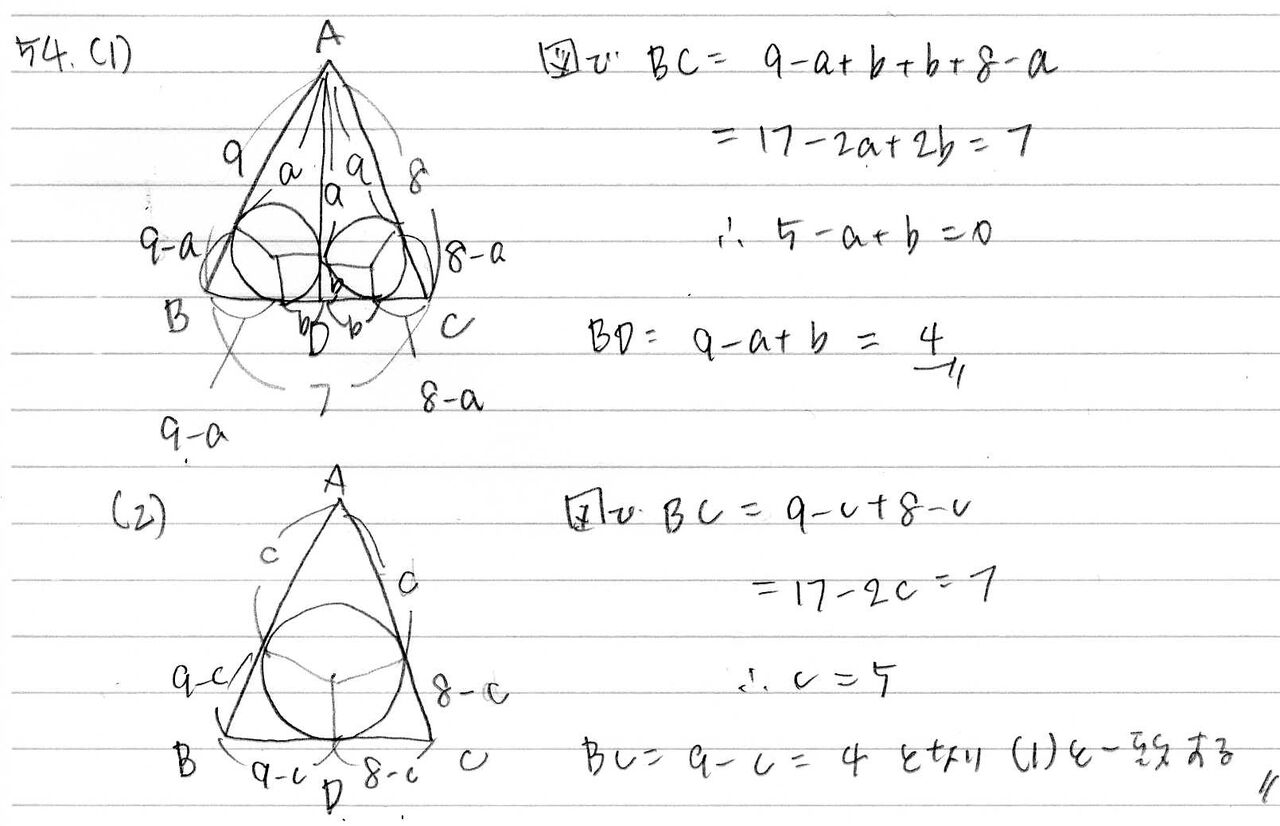 54. (1)
A
図で BC = 9-a+b+b+8-a
= 17-2a+2b = 7
9
a
a
a
8
∴ 5-a+b=0
9-a
8-a
b
B
b
D
b
C
BD = 9-a+b = 4
7
8-a
9-a
(2)
A
図で BC = 9-c+8-c
c
c
= 17-2c = 7
9-c
8-c
∴ c = 5
B
9-c
D
8-c
C
BC = 9-c = 4 となり (1)と一致する